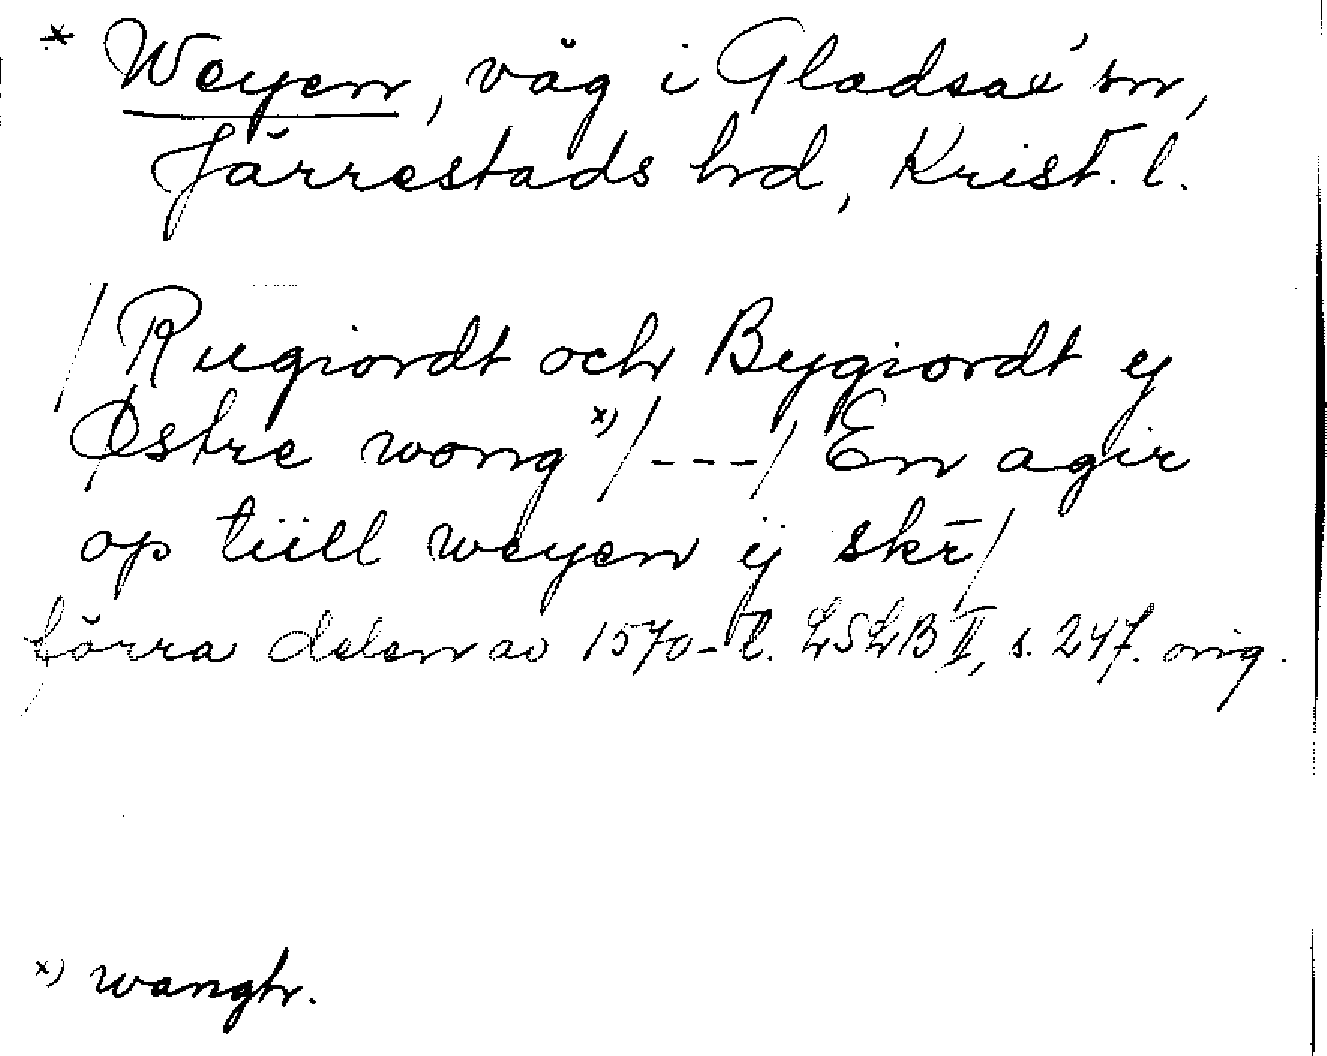 * Weyen, väg i Gladsax' sn,
Järrestads hd, Krist. l.
/Rugiordt och Bygiordt ej
Østre wong x)/---/ En agir
op tiill weyen ij skr̄/
förra delen av 1570-t. LSLB II, s. 247. orig.
x) wangtr.